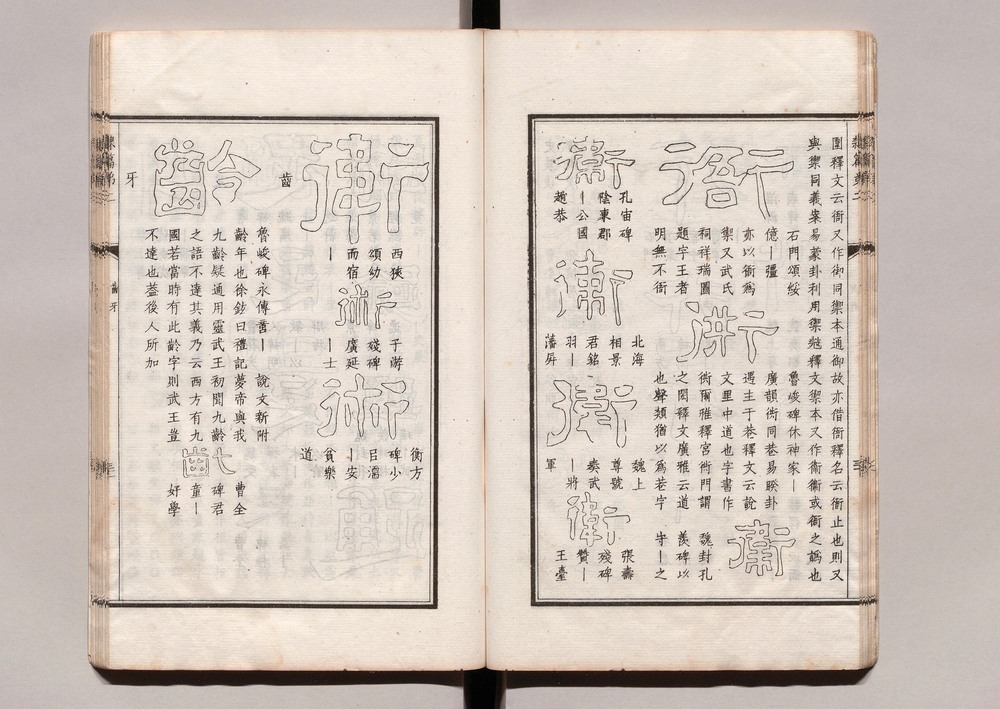 圉釋文云衙又作御同禦本通御故亦借衙釋名云衙止也則又
與禦同義案易蒙卦利用禦寇釋文禦本又作衛衞或衙之譌也
衙
石門頌綏
億丨彊
亦以衙為
禦又武氏
祠祥瑞圖
題字王者
明無不衙
衖
魯峻碑休神家丨
廣韻衖同巷易睽卦
遇主于巷釋文云說
文里中道也字書作
衖爾雅釋宮衖門謂
之閎釋文廣雅云道
也聲類猶以為巷字
衛
魏封孔
羨碑以
守丨之
衛
孔宙碑
陰東郡
丨公國
趙恭
衛
北海
相景
君銘
羽丨
藩屏
衛
魏上
尊號
奏武
丨將
軍
衛
張壽
殘碑
贊丨
王臺
衛
西狹
頌幼
而宿
丨
術
子游
殘碑
廣延
丨士
術
衡方
碑少
㠯濡
丨安
貧樂
道
齒
齡
魯峻碑永傳丨
說文新附
齡年也徐鉉曰禮記夢帝與我
九齡疑通用靈武王初聞九齡
之語不達其義乃云西方有九
國若當時有此齡字則武王豈
不達也葢後人所加
齔
曹全
碑君
童丨
好學
牙
齒牙